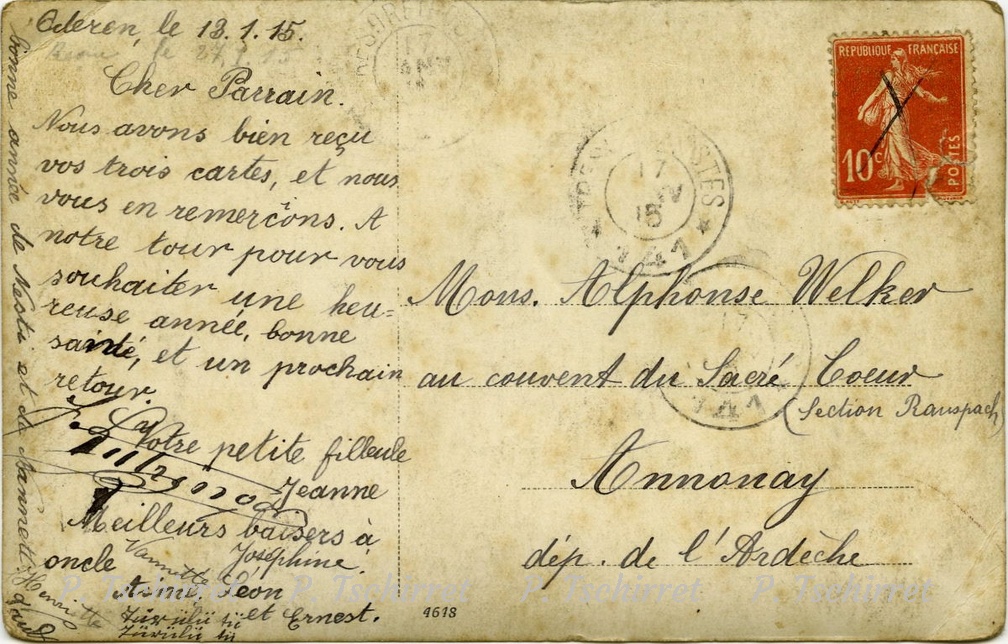 Oderen, le 13.1.15.
Cher Parrain.
Nous avons bien reçu
vos trois cartes, et nous
vous en remerçons. A
notre tour pour vous
souhaiter une heu=
reuse année, bonne
santé, et un prochain
retour.
Votre petite filleule
Jeanne
Meilleurs baisers à
oncle Joséphine.
Léon
et Ernest.
bonne année de
et la
RÉPUBLIQUE FRANÇAISE
10c
POSTES
POSTES
17
15
* 141 *
Mons. Alphonse Welker
au couvent du Sacré Coeur
(Section Ranspach)
Annonay
dép. de l'Ardèche
17
141
4618
P. Tschirret P. Tschirret P. Tschirret P. Tschirret